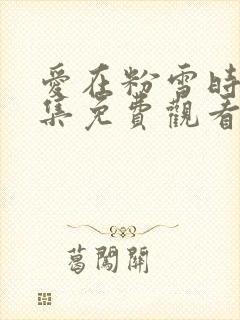 愛在粉雪時
集免費觀看
葛闖關